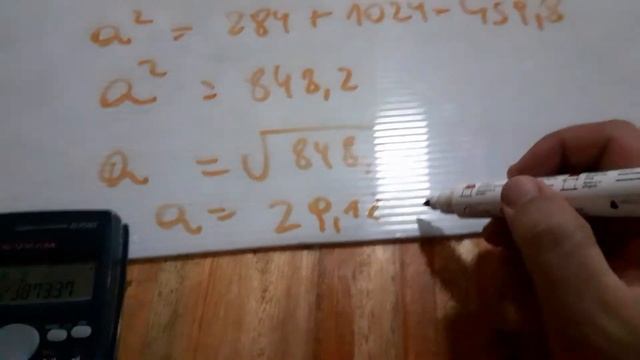 a² = 284 + 1024 - 459,8
a² = 848,2
a = √848,
a = 29,12